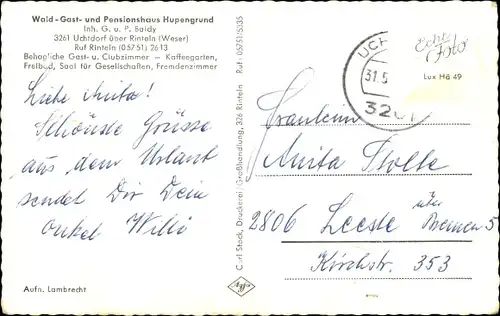 Wald-Gast- und Pensionshaus Hupengrund
Inh. G. u. P. Baldy
3261 Uchtdorf über Rinteln (Weser)
Ruf Rinteln (05751) 2613
Behagliche Gast- u. Clubzimmer — Kaffeegarten,
Freibad, Saal für Gesellschaften, Fremdenzimmer
Liebe Anita!
Schönste Grüsse
aus dem Urlaub
sendet Dir Dein
Onkel Willi
Aufn. Lambrecht
Carl Stock, Druckerei-Großhandlung, 326 Rinteln Ruf: 05751/5335
Agfa
UCH
31.5
3261
Echte Foto
Lux Hd 49
Fräulein
Anita Stolte
2806 Leeste über Bremen 5
Kirchstr. 353